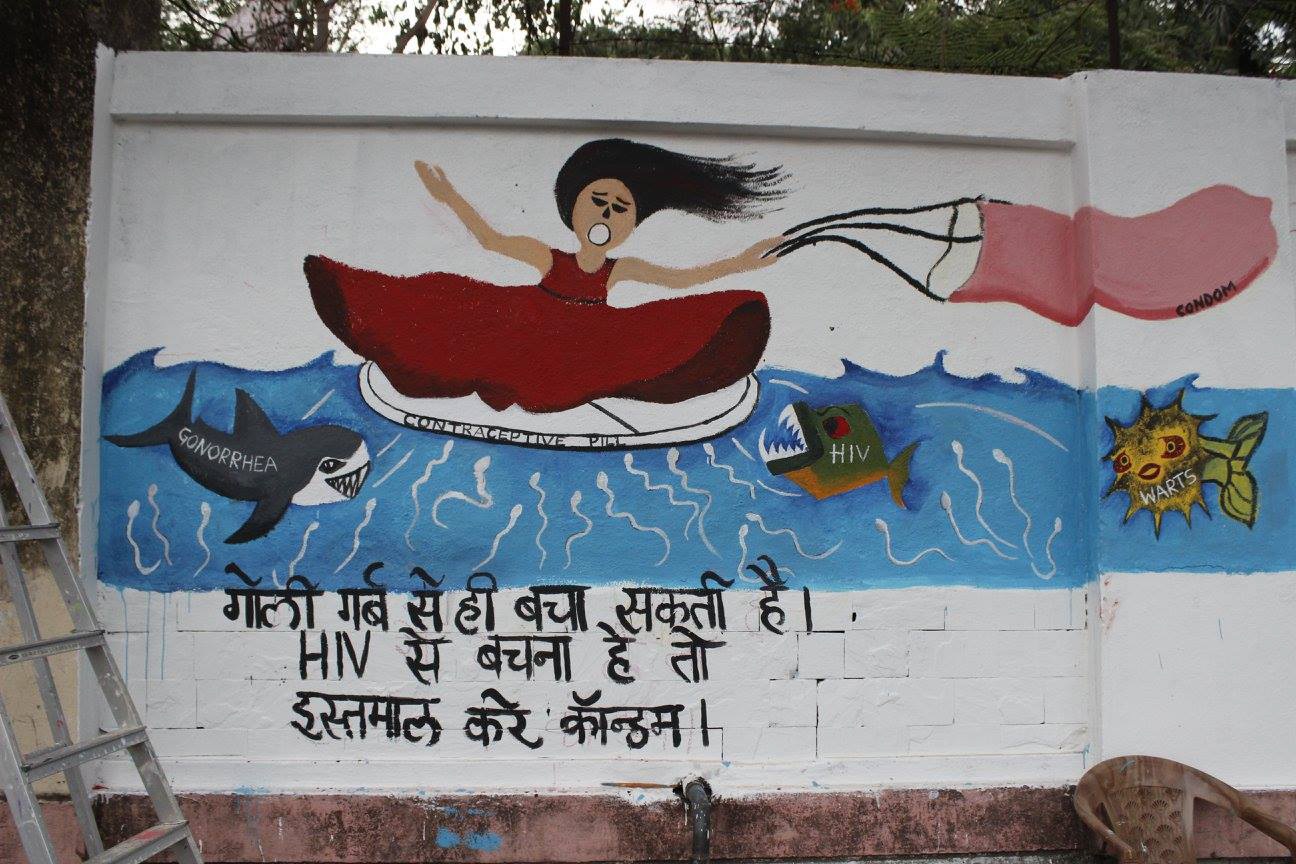 CONDOM
CONTRACEPTIVE PILL
GONORRHEA
HIV
WARTS
गोली गर्ब से ही बचा सकती है।
HIV से बचना है तो
इस्तमाल करे कॉन्डम।